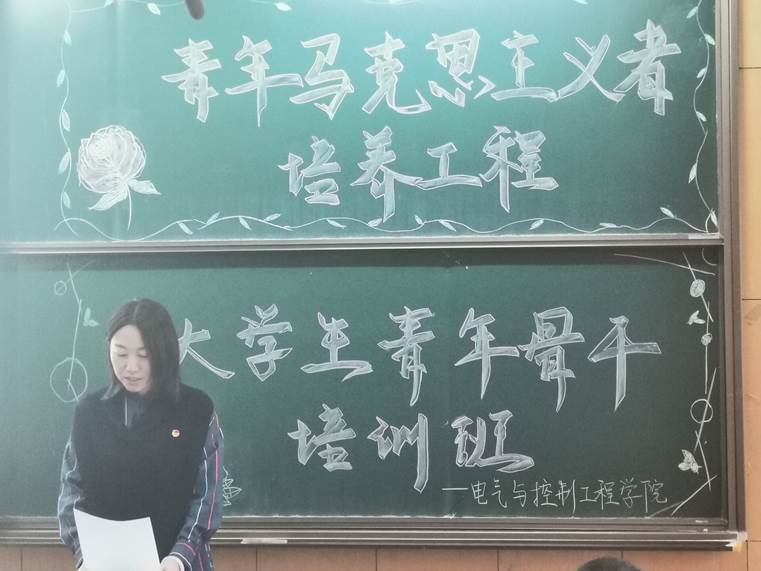 青年马克思主义者
培养工程
大学生青年骨干
培训班
—电气与控制工程学院